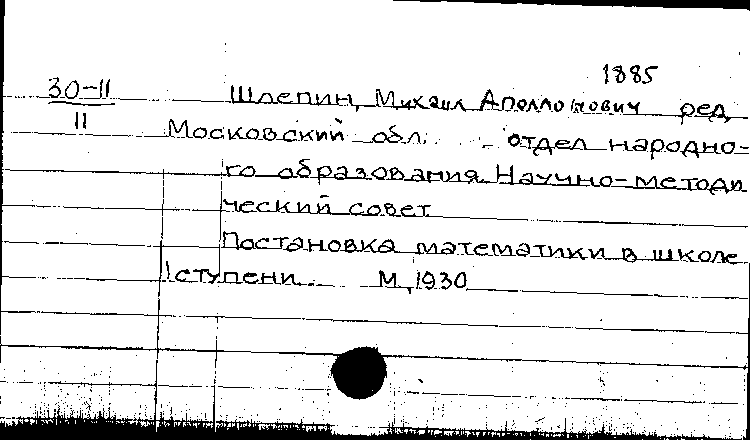 1885
30-11 Шлепин, Михаил Аполлонович ред.
11 Московский обл. отдел народно-
го образования. Научно-методи
ческий совет
Постановка математики в школе
I ступени. М, 1930